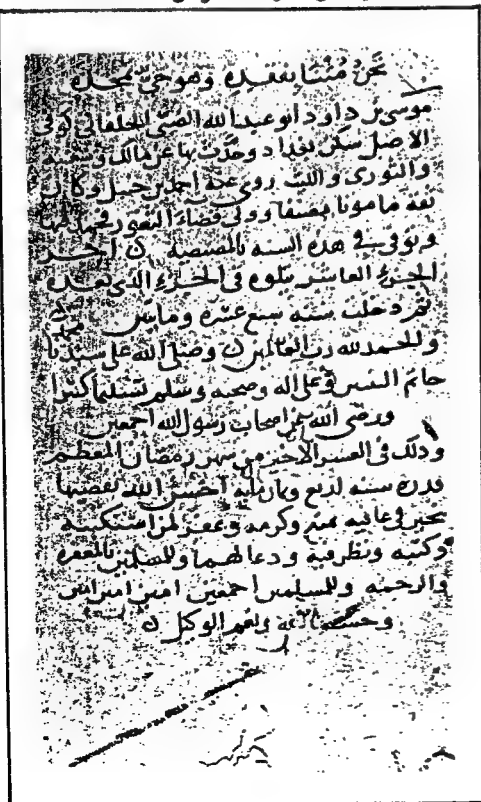 نحن متنا بفقده وهو حي بمجده
موسى بن داود ابو عبد الله الضبي الخلقاني كوفي
الاصل سكن بغداد وحدث بها عن مالك وشعبه
والثوري والليث روى عنه احمد بن حنبل وكان
ثقة مامونا مصنفا وولي قضاء الثغور فحمد فيها
وتوفي في هذه السنه بالمصيصه اخر
الجزء العاشر يتلوه في الجزء الذي بعده
ثم دخلت سنه سبع عشره ومايتين
والحمد لله رب العالمين وصلى الله على سيدنا
خاتم النبيين وعلى اله وصحبه وسلم تسليما كثيرا
ورضى الله عن اصحاب رسول الله اجمعين
وذلك في العشر الاخير من شهر رمضان المعظم
قدره سنه اربع احسن الله تقضيها
بخير وعافيه بمنه وكرمه وغفر لمن استكتبه
وكتبه ونظر فيه ودعا لهما وللمسلمين بالمغفره
والرحمه وللمسلمين اجمعين امين امين امين
وحسبنا الله ونعم الوكيل